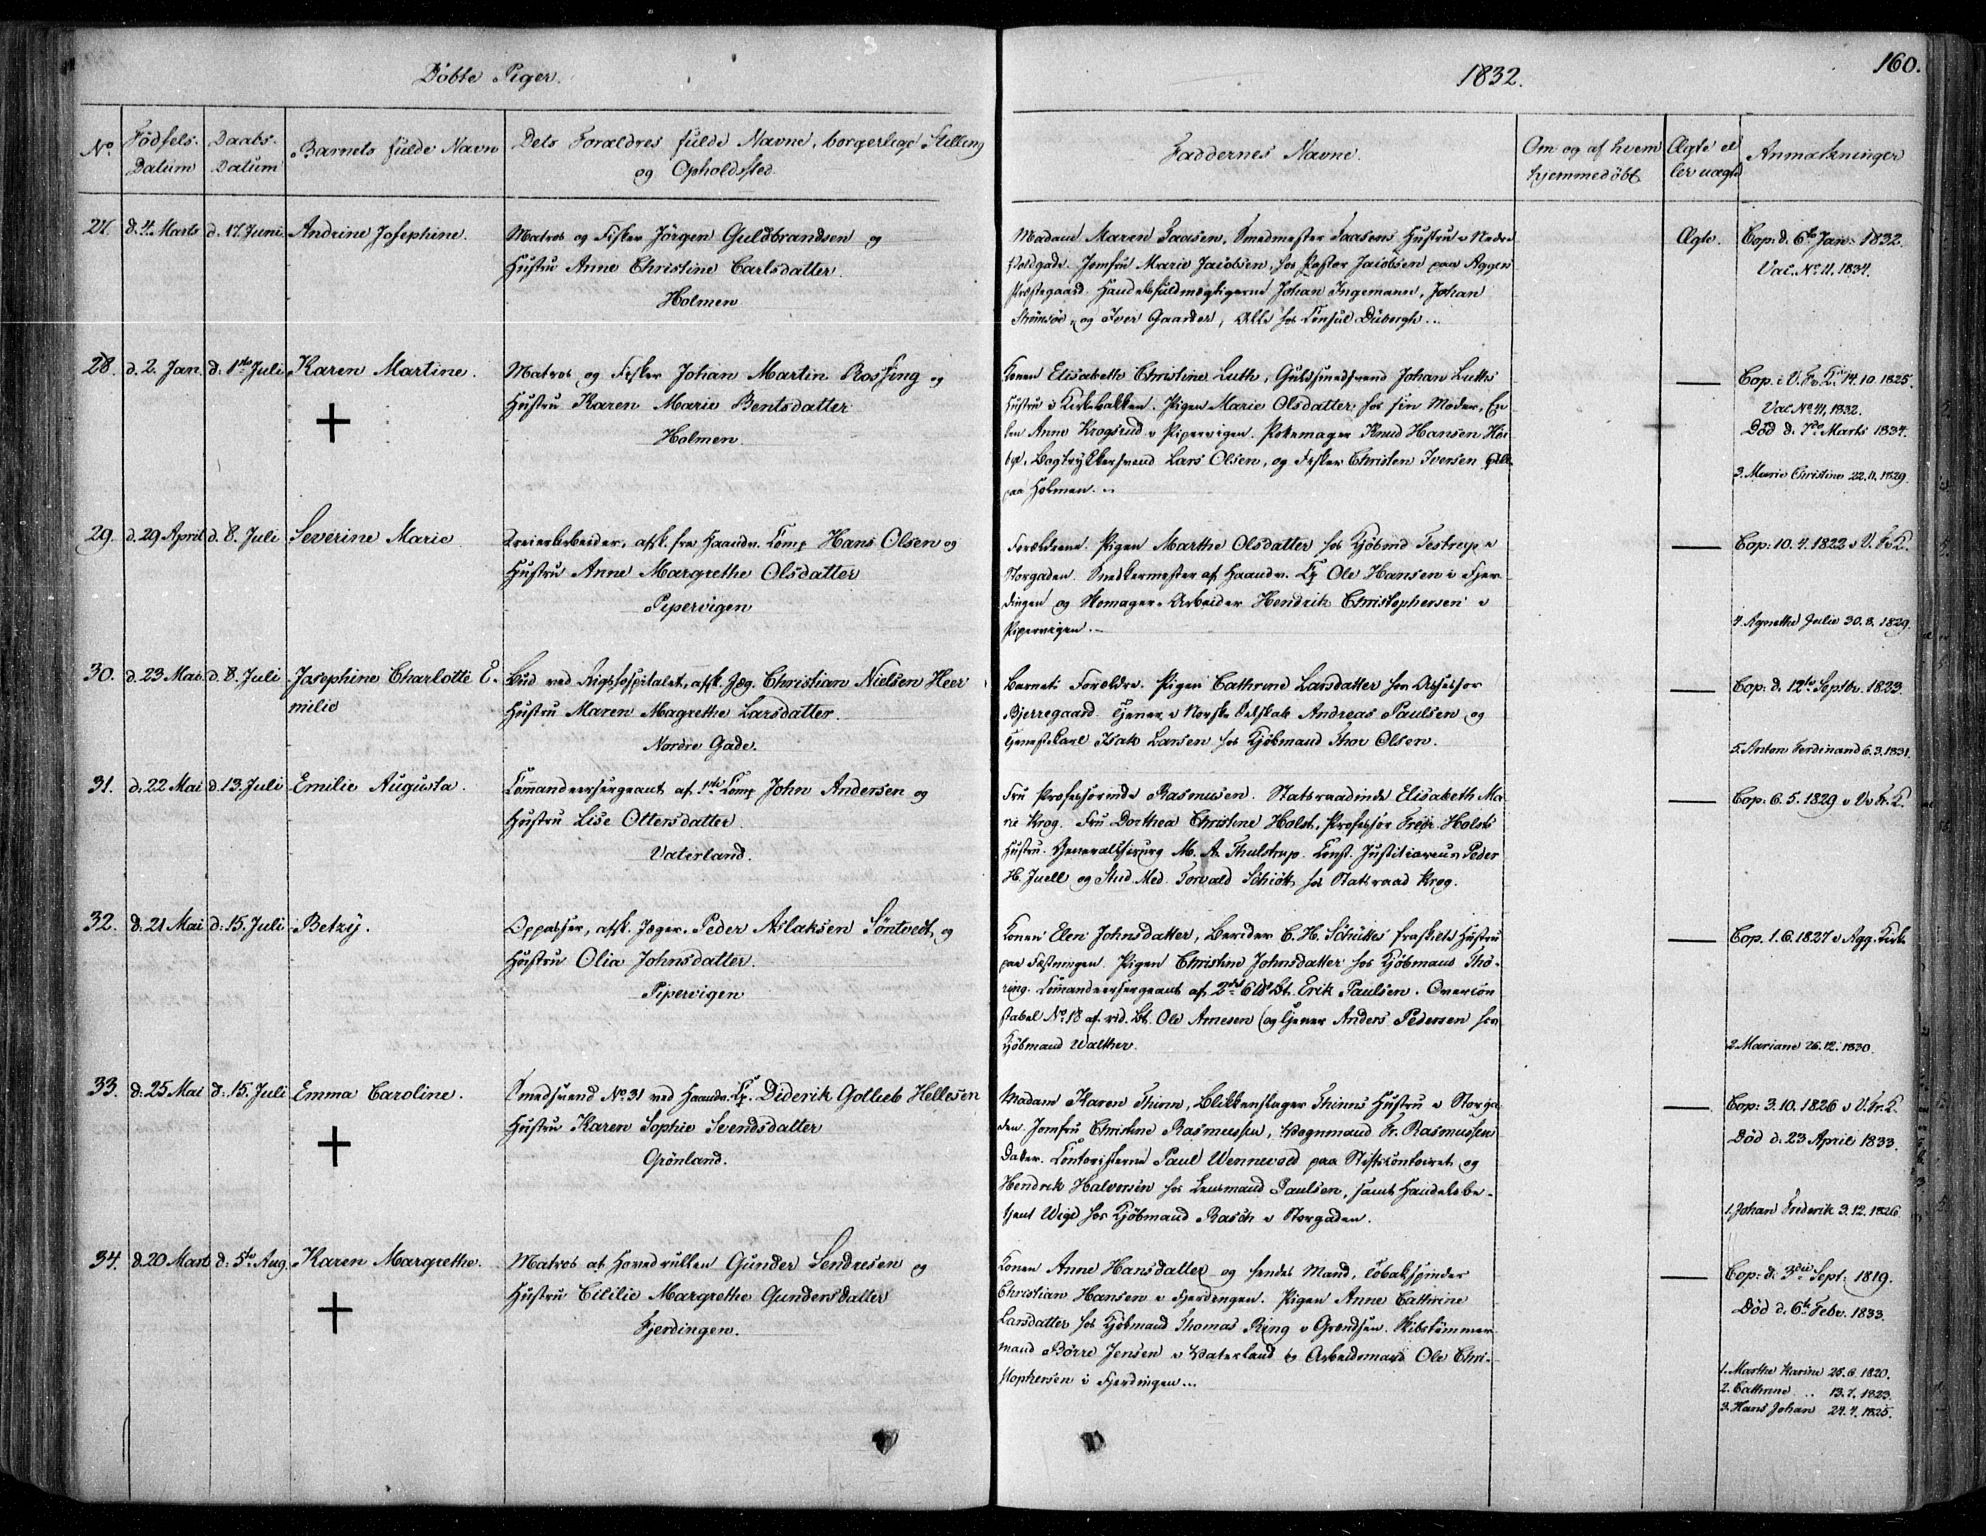 Döbte Piger.
1832.
160.
No
Födsels-Datum
Daabs-Datum
Barnets fulde Navn
Dets Forældres fulde Navne, borgerlige Stilling
og Opholdsted.
Faddernes Navne.
Om og af hvem
hjemmedöbt
Ægte el
ler uægte
Anmærkninger
27. d. 4. Marts d. 17. Juni. Andrine Josephine.
Matros og Fisker Jörgen Guldbrandsen og
Hustru Anne Christine Carlsdatter.
Holmen
Madam Maren Faasen, Smedmester Faasens Hustru i Nedre
Voldgade. Jomfru Marie Jacobsen, hos Pastor Jacobsen paa Aggers
Præstegaard. Handelsfuldmægtigerne Johan Ingemann, Johan
Strömsöe, og Iver Gaarder, Alle hos Consul Duborgh.
Ægte.
Cop: d. 6te Jan: 1832.
Vac. No 11. 1834.
28. d. 2. Jan. d: 1ste Juli Karen Martine.
Matros og Fisker Johan Martin Rossing og
Hustru Karen Marie Bentsdatter
Holmen.
Konen Elisabeth Christine Luth, Guldsmedsvend Johan Luths
Hustru i Kirkebakken. Pigen Marie Olsdatter hos sin Moder, En-
ken Anne Krogsrud i Pipervigen. Knud Hansen
Bogtrykkersvend Lars Olsen, og Fisker Christen Iversen
paa Holmen.
Cop. i V. Fr. K. 14. 10. 1825.
Vac No 4, 1832.
Död d. 7de Marts 1834.
3. Marie Christine 22. 11. 1829.
29. d. 29 April d. 8. Juli Severine Marie
Arbeider, afsk. fra Haandv. Comp Hans Olsen og
Hustru Anne Margrethe Olsdatter
Pipervigen
Forældrene. Pigen Marthe Olsdatter hos Kjöbmd Testrup i
Storgaden. Snedkermester af Haandv. Cp Ole Hansen i Fjer-
dingen og Skomager-Arbeider Hendrik Christophersen i
Pipervigen.
Cop: 10. 4. 1823 i V. Fr. K.
4. Agnethe Julie 30. 8. 1829.
30. d. 23 Mai d. 8. Juli Josephine Charlotte E-
milie
Bud ved Rigshospitalet, afsk. Jæg. Christian Nielsen Heer
Hustru Maren Magrethe Larsdatter.
Nordre Gade.
Barnets Forældre. Pigen Cathrine Larsdatter hos Assessor
Bjerregaard. Tjener i Norske Selskab Andreas Paulsen og
Tjenestekarl Isak Larsen hos Kjöbmand Thor Olsen.
Cop: d. 12te Septbr. 1823.
5. Anton Ferdinand 6. 3. 1831.
31. d. 22 Mai d. 13. Juli Emilie Augusta.
Commandeersergeant af 1ste Comp John Andersen og
Hustru Lise Ottersdatter.
Vaterland.
Fru Professorinde Rasmusen. Statsraadinde Elisabeth Ma-
rie Krog. Fru Dorthea Christine Holst, Professor Fredr. Holsts
Hustru. Generalchirurg M. A. Thulstrup. Const. Justitiarius Peder
H. Juell og Stud. Med. Torvald Schiöth hos Statsraad Krog.
Cop: 6. 5. 1829 i Vor Fr. K.
32. d. 21 Mai d: 15. Juli Betzy.
Oppasser, afsk. Jæger Peder Aslaksen Söntvedt og
Hustru Olia Johnsdatter.
Pipervigen
Konen Elen Johnsdatter, Berider C. H. Schüttes fraskilte Hustru
paa Fæstningen. Pigen Christine Johnsdatter hos Kjöbmand Thö-
ring. Commandeersergeant af 2det 6 Bt. Erik Paulsen. Overcon-
stabel No 18 af rid. Bt. Ole Arnesen og Tjener Anders Pedersen hos
Kjöbmand Walther.
Cop. 1. 6. 1827 i Agg. Kirke
2. Mariane 26. 12. 1830.
33. d: 25 Mai d: 15. Juli Emma Caroline.
Smedsvend No. 31 ved Haandv. Cp. Diderik Gotlieb Hellesen
Hustru Karen Sophie Svendsdatter
Grönland.
Madam Karen Thinn, Blikkenslager Thinns Hustru i Storga-
den. Jomfru Christine Rasmussen, Vognmand Fr. Rasmussens
Datter. Contoristerne Paul Wennevold paa Stiftscontoiret og
Hendrik Halvorsen hos Lensmand Paulsen, samt Handelsbe-
tjent Wigd hos Kjöbmand Rasch i Storgaden.
Cop: 3. 10. 1826 i V. Fr. K.
Död d. 23 April 1833.
1. Johan Frederik 3. 12. 1826.
34. d. 20 Marts d: 5te Aug. Karen Margrethe.
Matros af Hovedrullen Gunder Sendresen og
Hustru Cicilie Margrethe Gundersdatter
Fjerdingen.
Konen Anne Hansdatter og hendes Mand, Tobakspinder
Christian Hansen i Fjerdingen. Pigen Anne Cathrine
Larsdatter hos Kjöbmand Thomas Ring i Grændsen. Skibstömmer-
mand Börre Jensen i Vaterland og Arbeidsmand Ole Chri-
stophersen i Fjerdingen.
Cop: d. 3die Sept. 1819.
Död d. 6te Febr. 1833.
1. Marthe Karine 25. 6. 1820.
2. Cathrine .. 13. 7. 1823.
3. Hans Johan 24. 4. 1825.